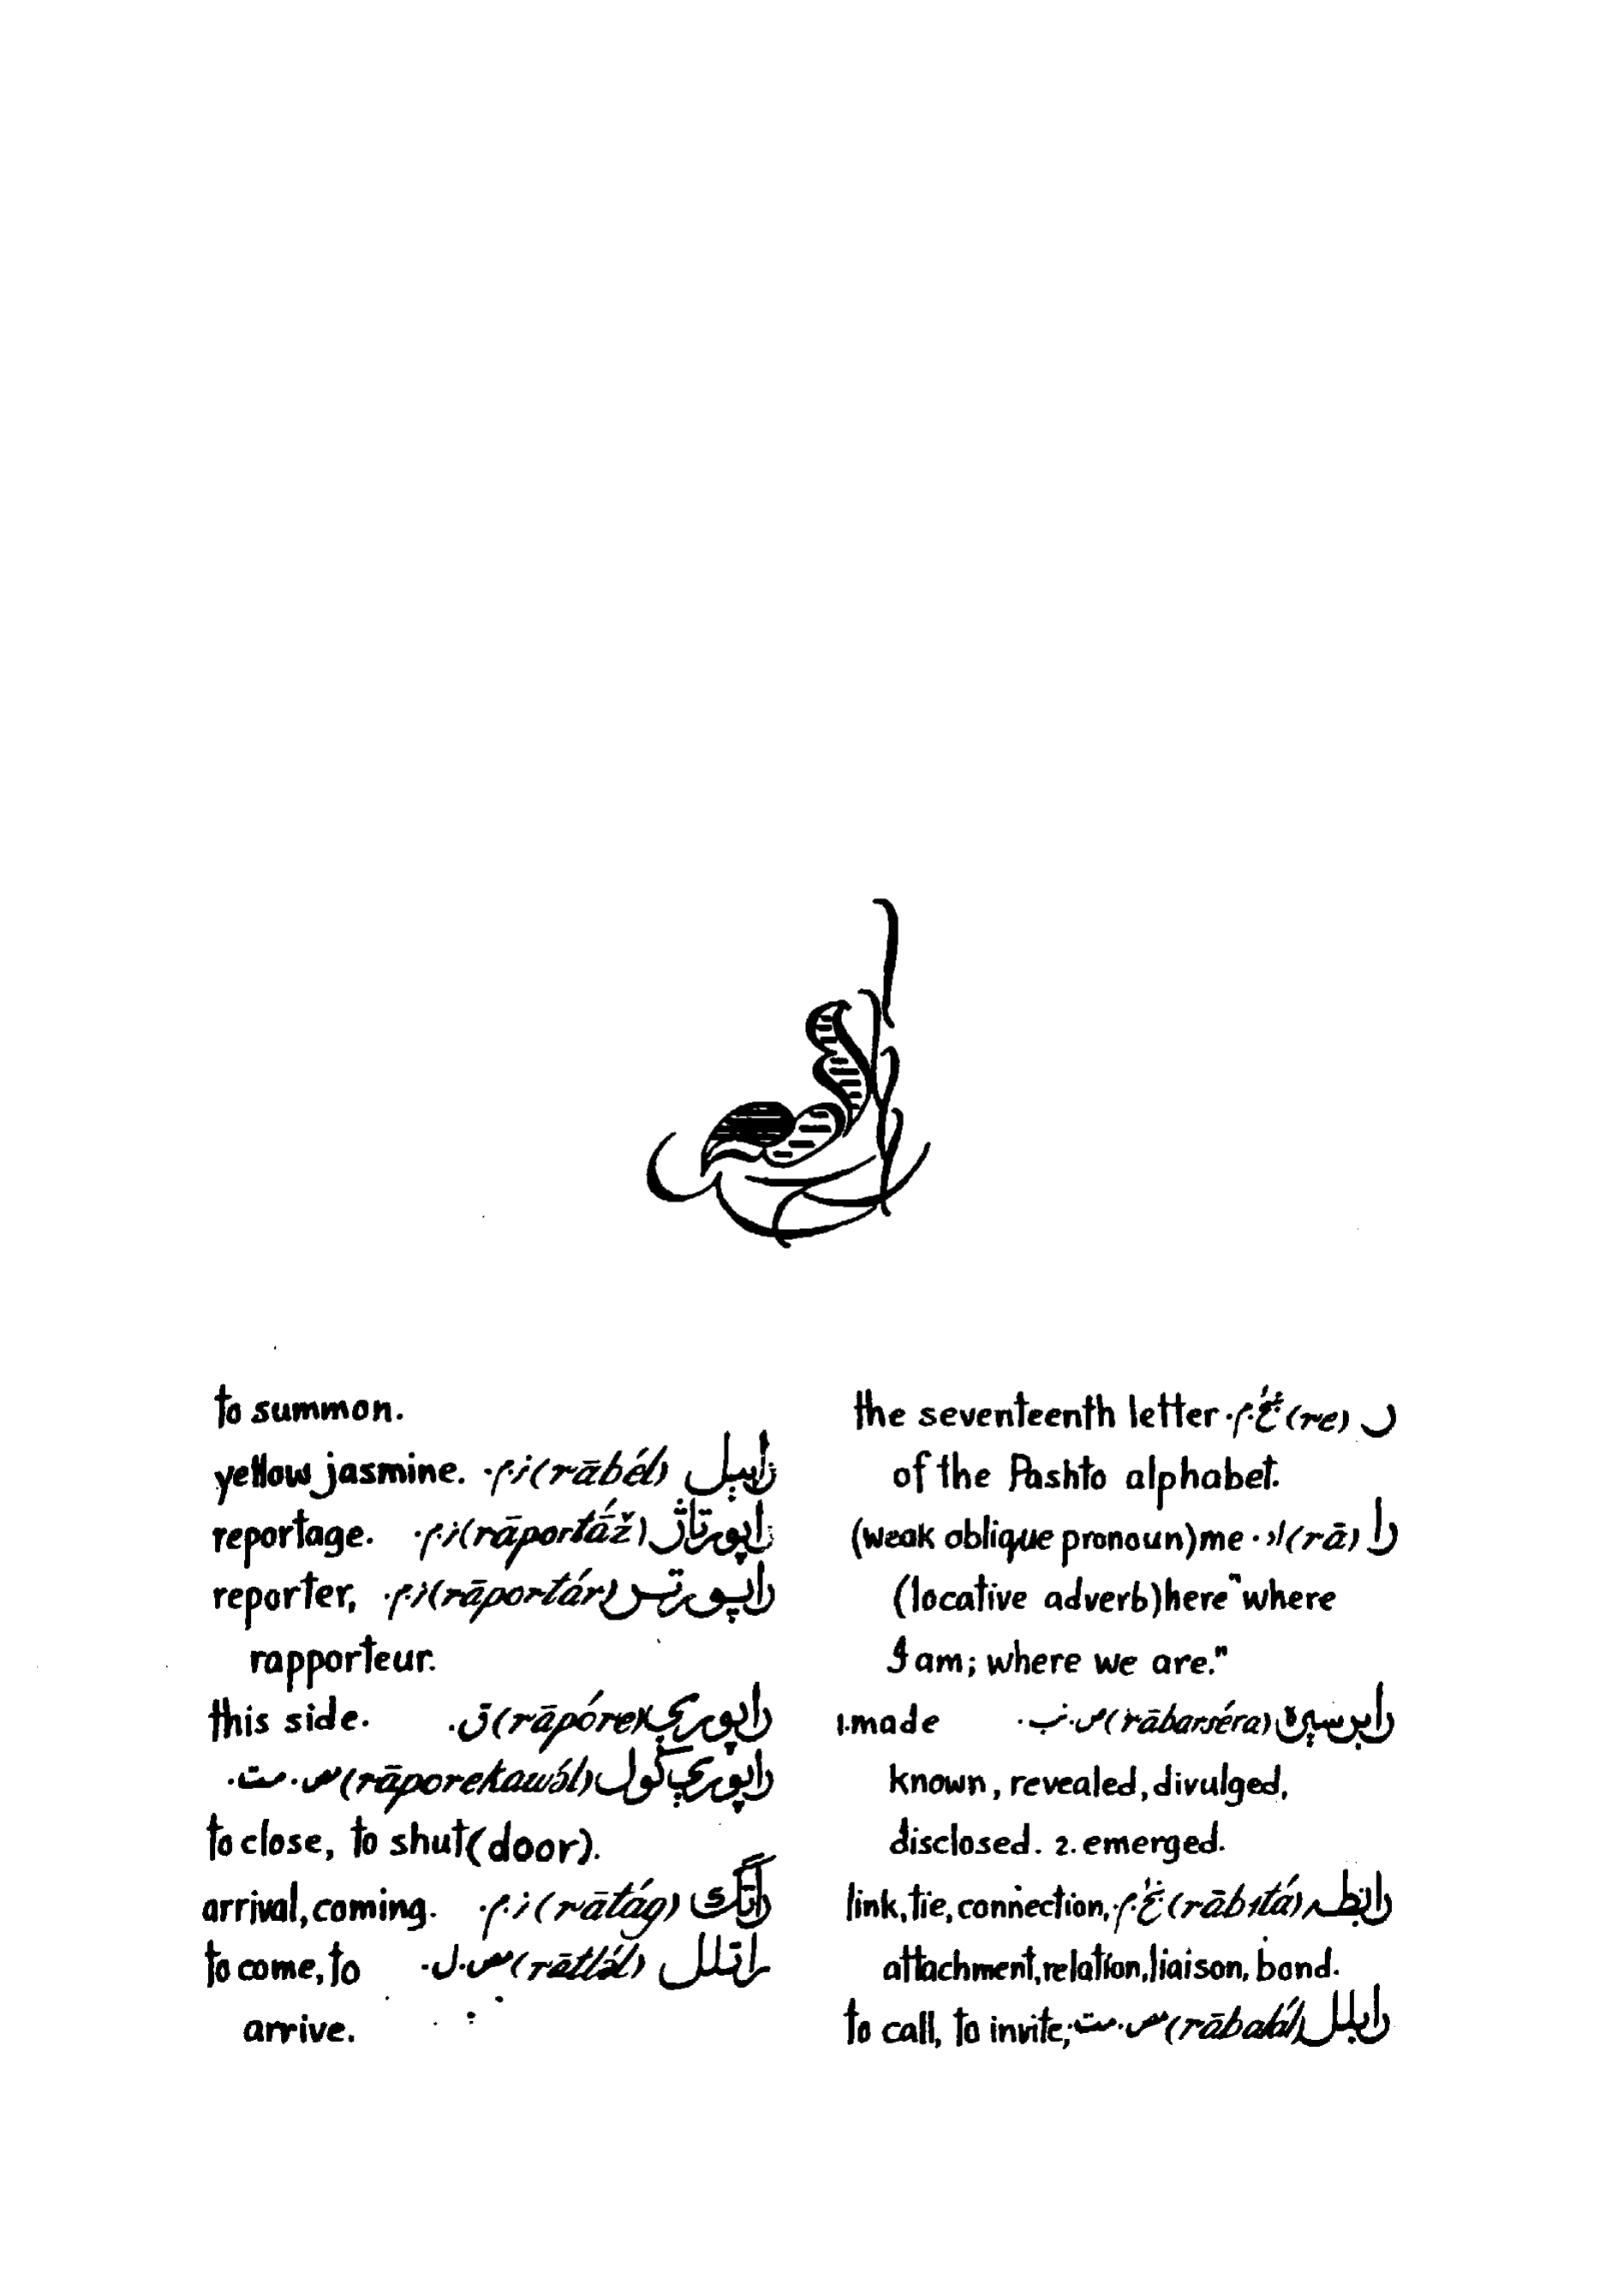 ر (re) غ.م. the seventeenth letter
of the Pashto alphabet.
را (rā) (weak oblique pronoun) me
(locative adverb) here "where
I am; where we are."
رابرسېره (rābarséra) ص.ب. 1. made
known, revealed, divulged,
disclosed. 2. emerged.
رابطه (rābıtá) غ.م. link, tie, connection,
attachment, relation, liaison, bond.
رابلل (rābalə́l) ص.مت. to call, to invite;
to summon.
رابېل (rābél) ذ.م. yellow jasmine.
راپورتاژ (rāportā́ž) ذ.م. reportage.
راپورتر (rāportár) ذ.م. reporter,
rapporteur.
راپورې (rāpóre) ق. this side.
راپورې کول (rāporekawə́l) ص.مت.
to close, to shut (door).
راتگ (rātág) ذ.م. arrival, coming.
راتلل (rātlə́l) ص.ل. to come, to
arrive.